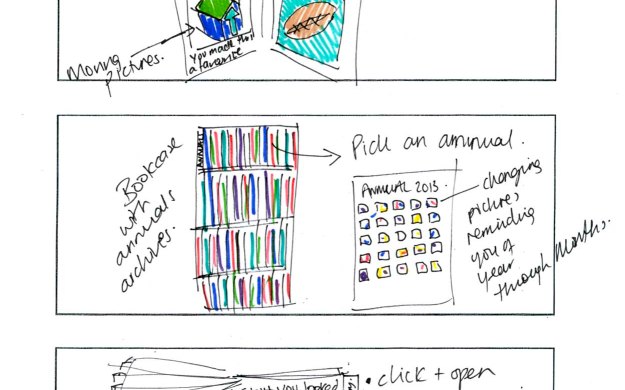 Moving
pictures.
You made this
a favourite
Bookcase
with
annuals
archives.
Pick an annual.
2013
changing
pictures
reminding
you of
year
through months.
you looked
• click + open